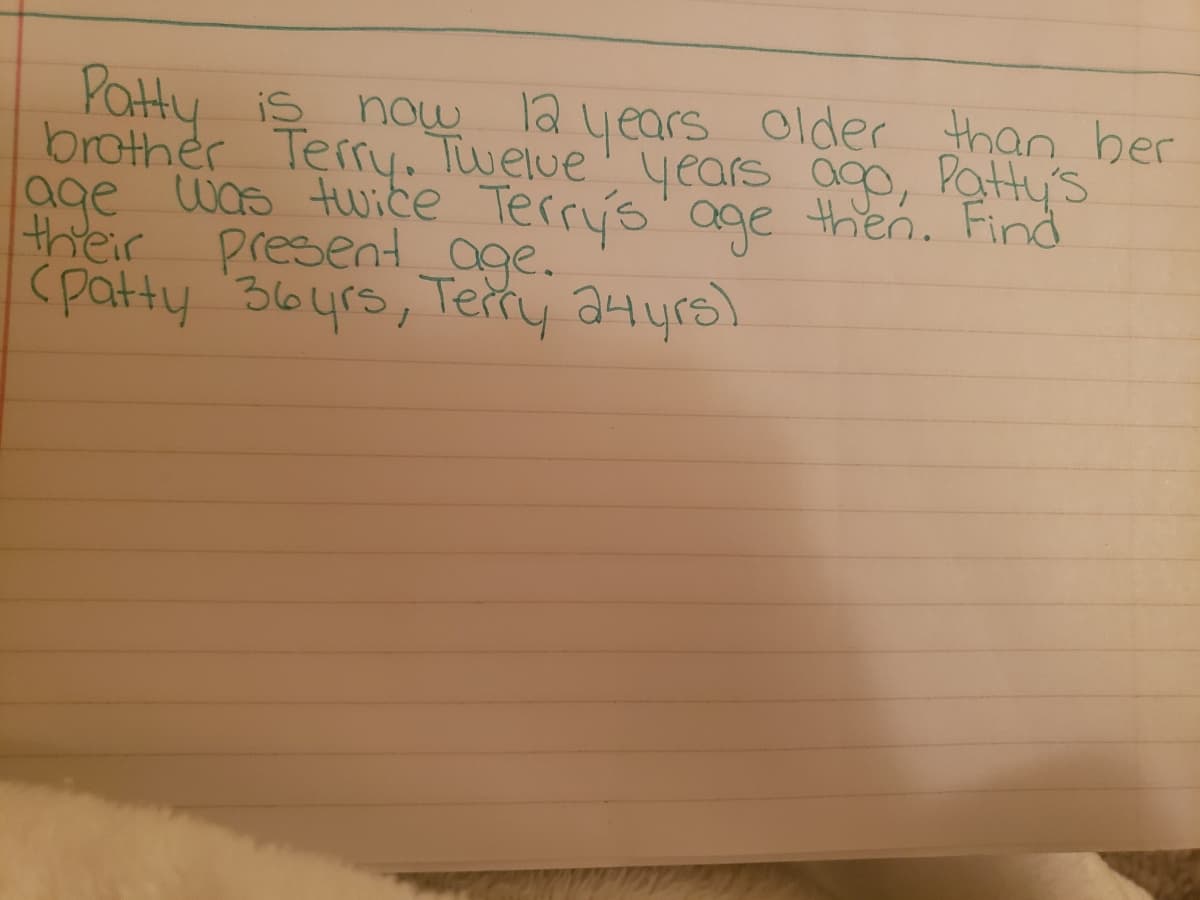 Patty is now 12 years older than her
brother Terry. Twelve years ago, Patty's
age was twice Terry's age then. Find
their present age.
(Patty 36yrs, Terry 24yrs)